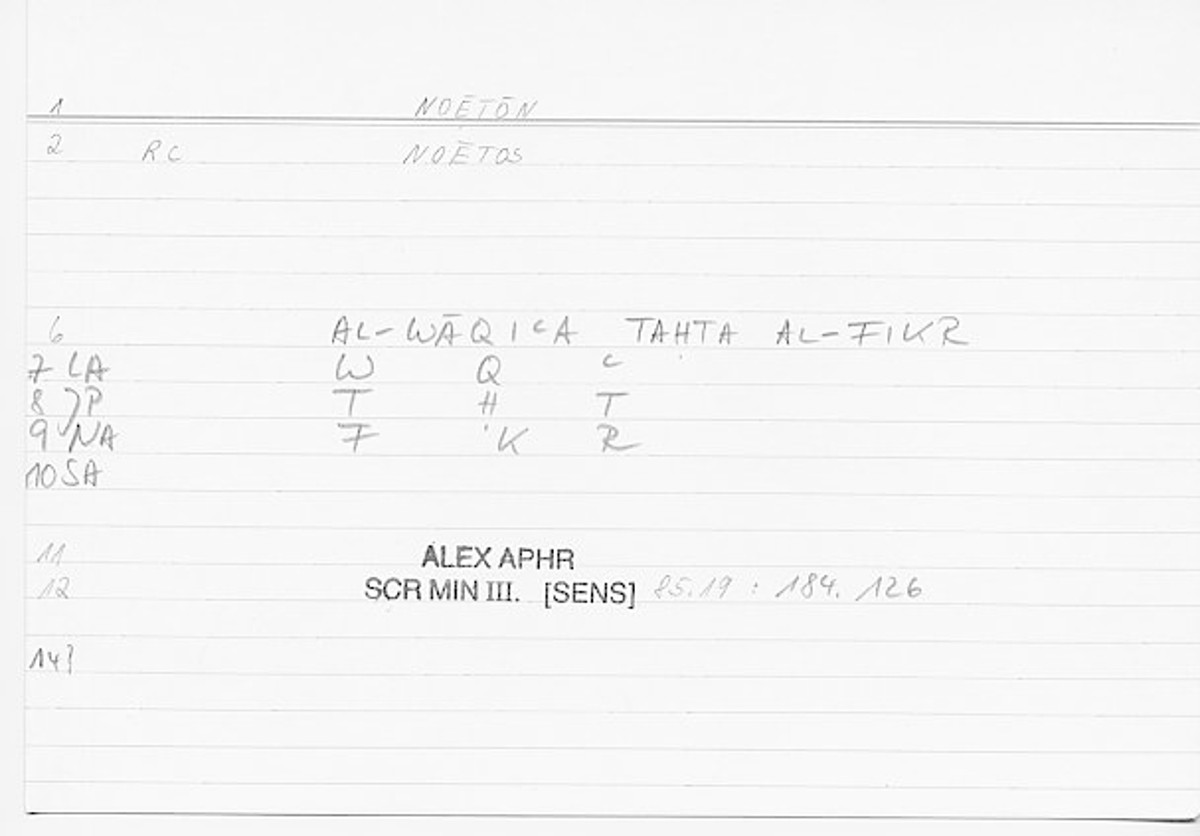 1 NOĒTŌN
2 RC NOĒTOS
6 AL-WĀQIᶜA TAḤTA AL-FIKR
7 LA W Q ᶜ
8 JP T Ḥ T
9 NA F K R
10 SA
11 ALEX APHR
12 SCR MIN III. [SENS] 85.19 : 184. 126
14}